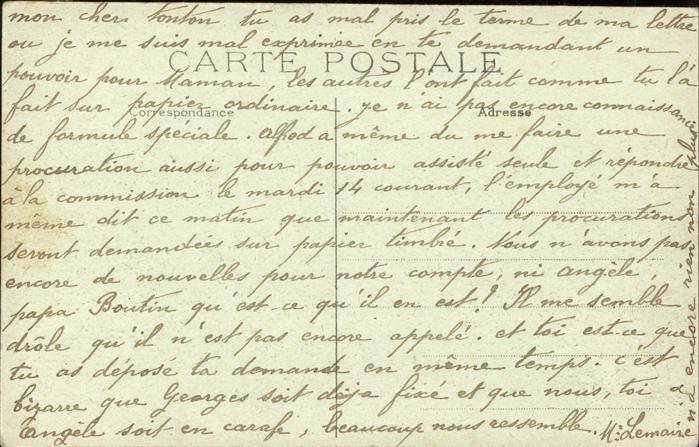 mon cher tonton tu as mal pris le terme de ma lettre
ou je me suis mal exprimée en te demandant un
CARTE POSTALE
pouvoir pour Maman, les autres l'ont fait comme tu l'a
fait sur papier ordinaire. je n'ai pas encore connaissance
Correspondance
Adresse
de formule spéciale. a même du me faire une
procuration aussi pour pouvoir assisté seule et répondre
à la commission le mardi 14 courant, l'employé m'a
même dit ce matin que maintenant les procurations
seront demandées sur papier timbré. Nous n'avons pas
encore de nouvelles pour notre compte, ni angèle,
papa Boutin qu'est-ce qu'il en est! Il me semble
drôle qu'il n'est pas encore appelé. et toi est-ce que
tu as déposé ta demande en même temps. c'est
bizarre que Georges soit déja fixé et que nous, toi
Angèle soit en carafe, beaucoup nous ressemble. Mr Lemaire
n'a encore rien non plus